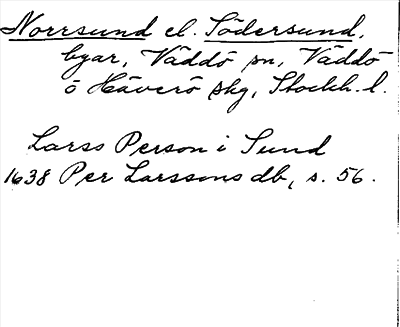 Norrsund el. Södersund,
byar, Väddö sn, Väddö
o Häverö skg, Stockh. l.
Larss Person i Sund
1638 Per Larssons db, s. 56.